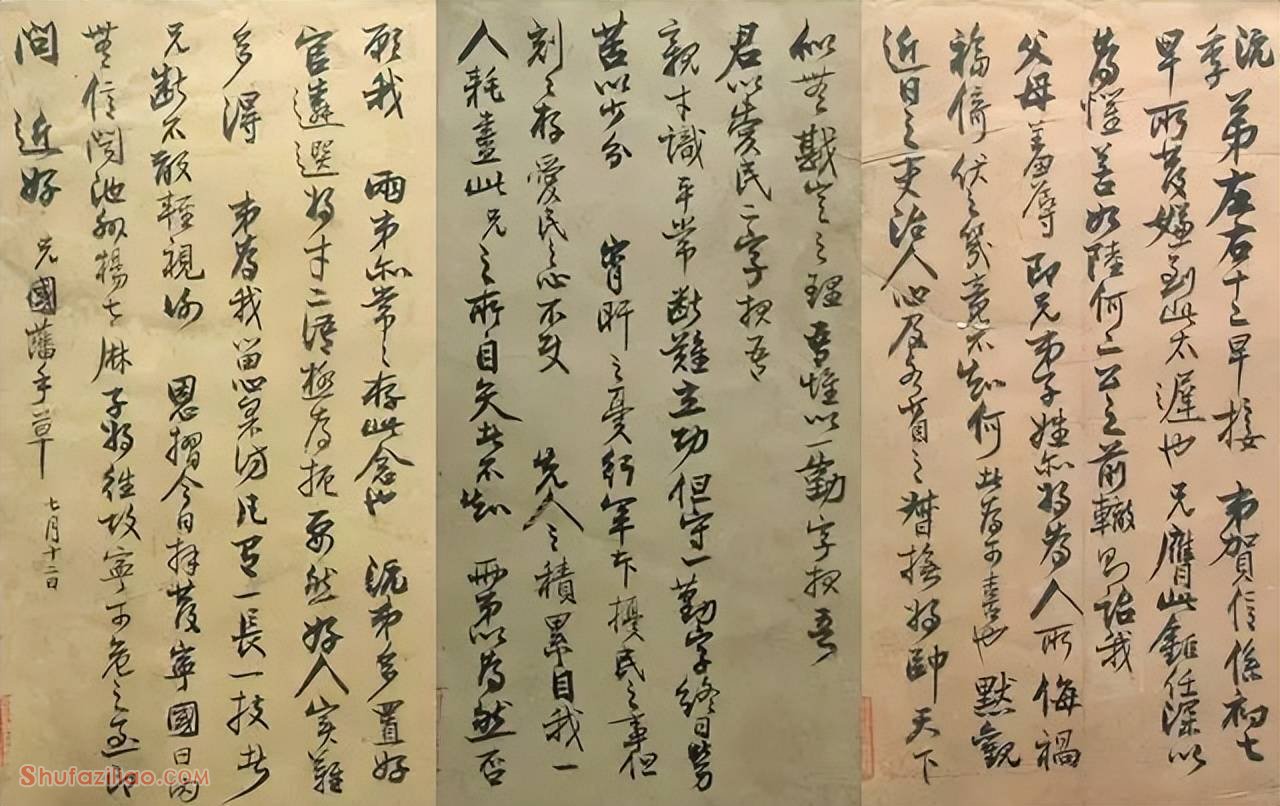 沅季 弟左右十二早接 弟賀信係初七
早所發嫌到此太遲也 兄膺此鉅任深以
為懼若如陸何二公之前轍則詒我
父母羞辱即兄弟子姪亦將為人所侮禍
福倚伏之幾竟不知何者為可喜也 默觀
近日之吏治人心及各省之督撫將帥天下
似無戡定之理吾惟以一勤字報吾
君以愛民二字報吾
親才識平常斷難立功但守一勤字終日勞
苦以少分 宵旰之憂行軍本擾民之事但
刻々存愛民之心不使 先人之積累自我一
人耗盡此兄之所自矢者不知 兩弟以為然否
願我 兩弟亦常々存此念也 沅弟多置好
官遴選將才二語極為扼要然好人實難
多得 弟為我留心採訪凡有一長一技者
兄斷不敢輕視謝 恩摺今日拜發寧國日內
無信聞池州楊七麻子將往攻寧可危之至即
問 近好 兄國藩手草 七月十二日
Shufaziliao.COM